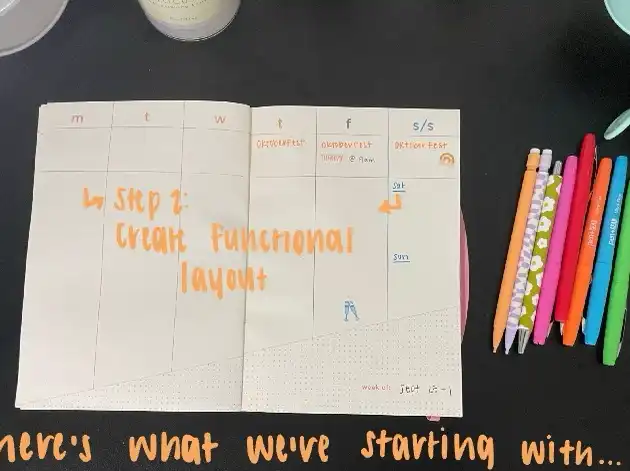 m t w t f s/s
Oktoberfest Oktoberfest Oktoberfest
@ 9am
sat
↳ Step 2:
Create Functional
layout
sun
week of: Sept
here's what we're starting with...